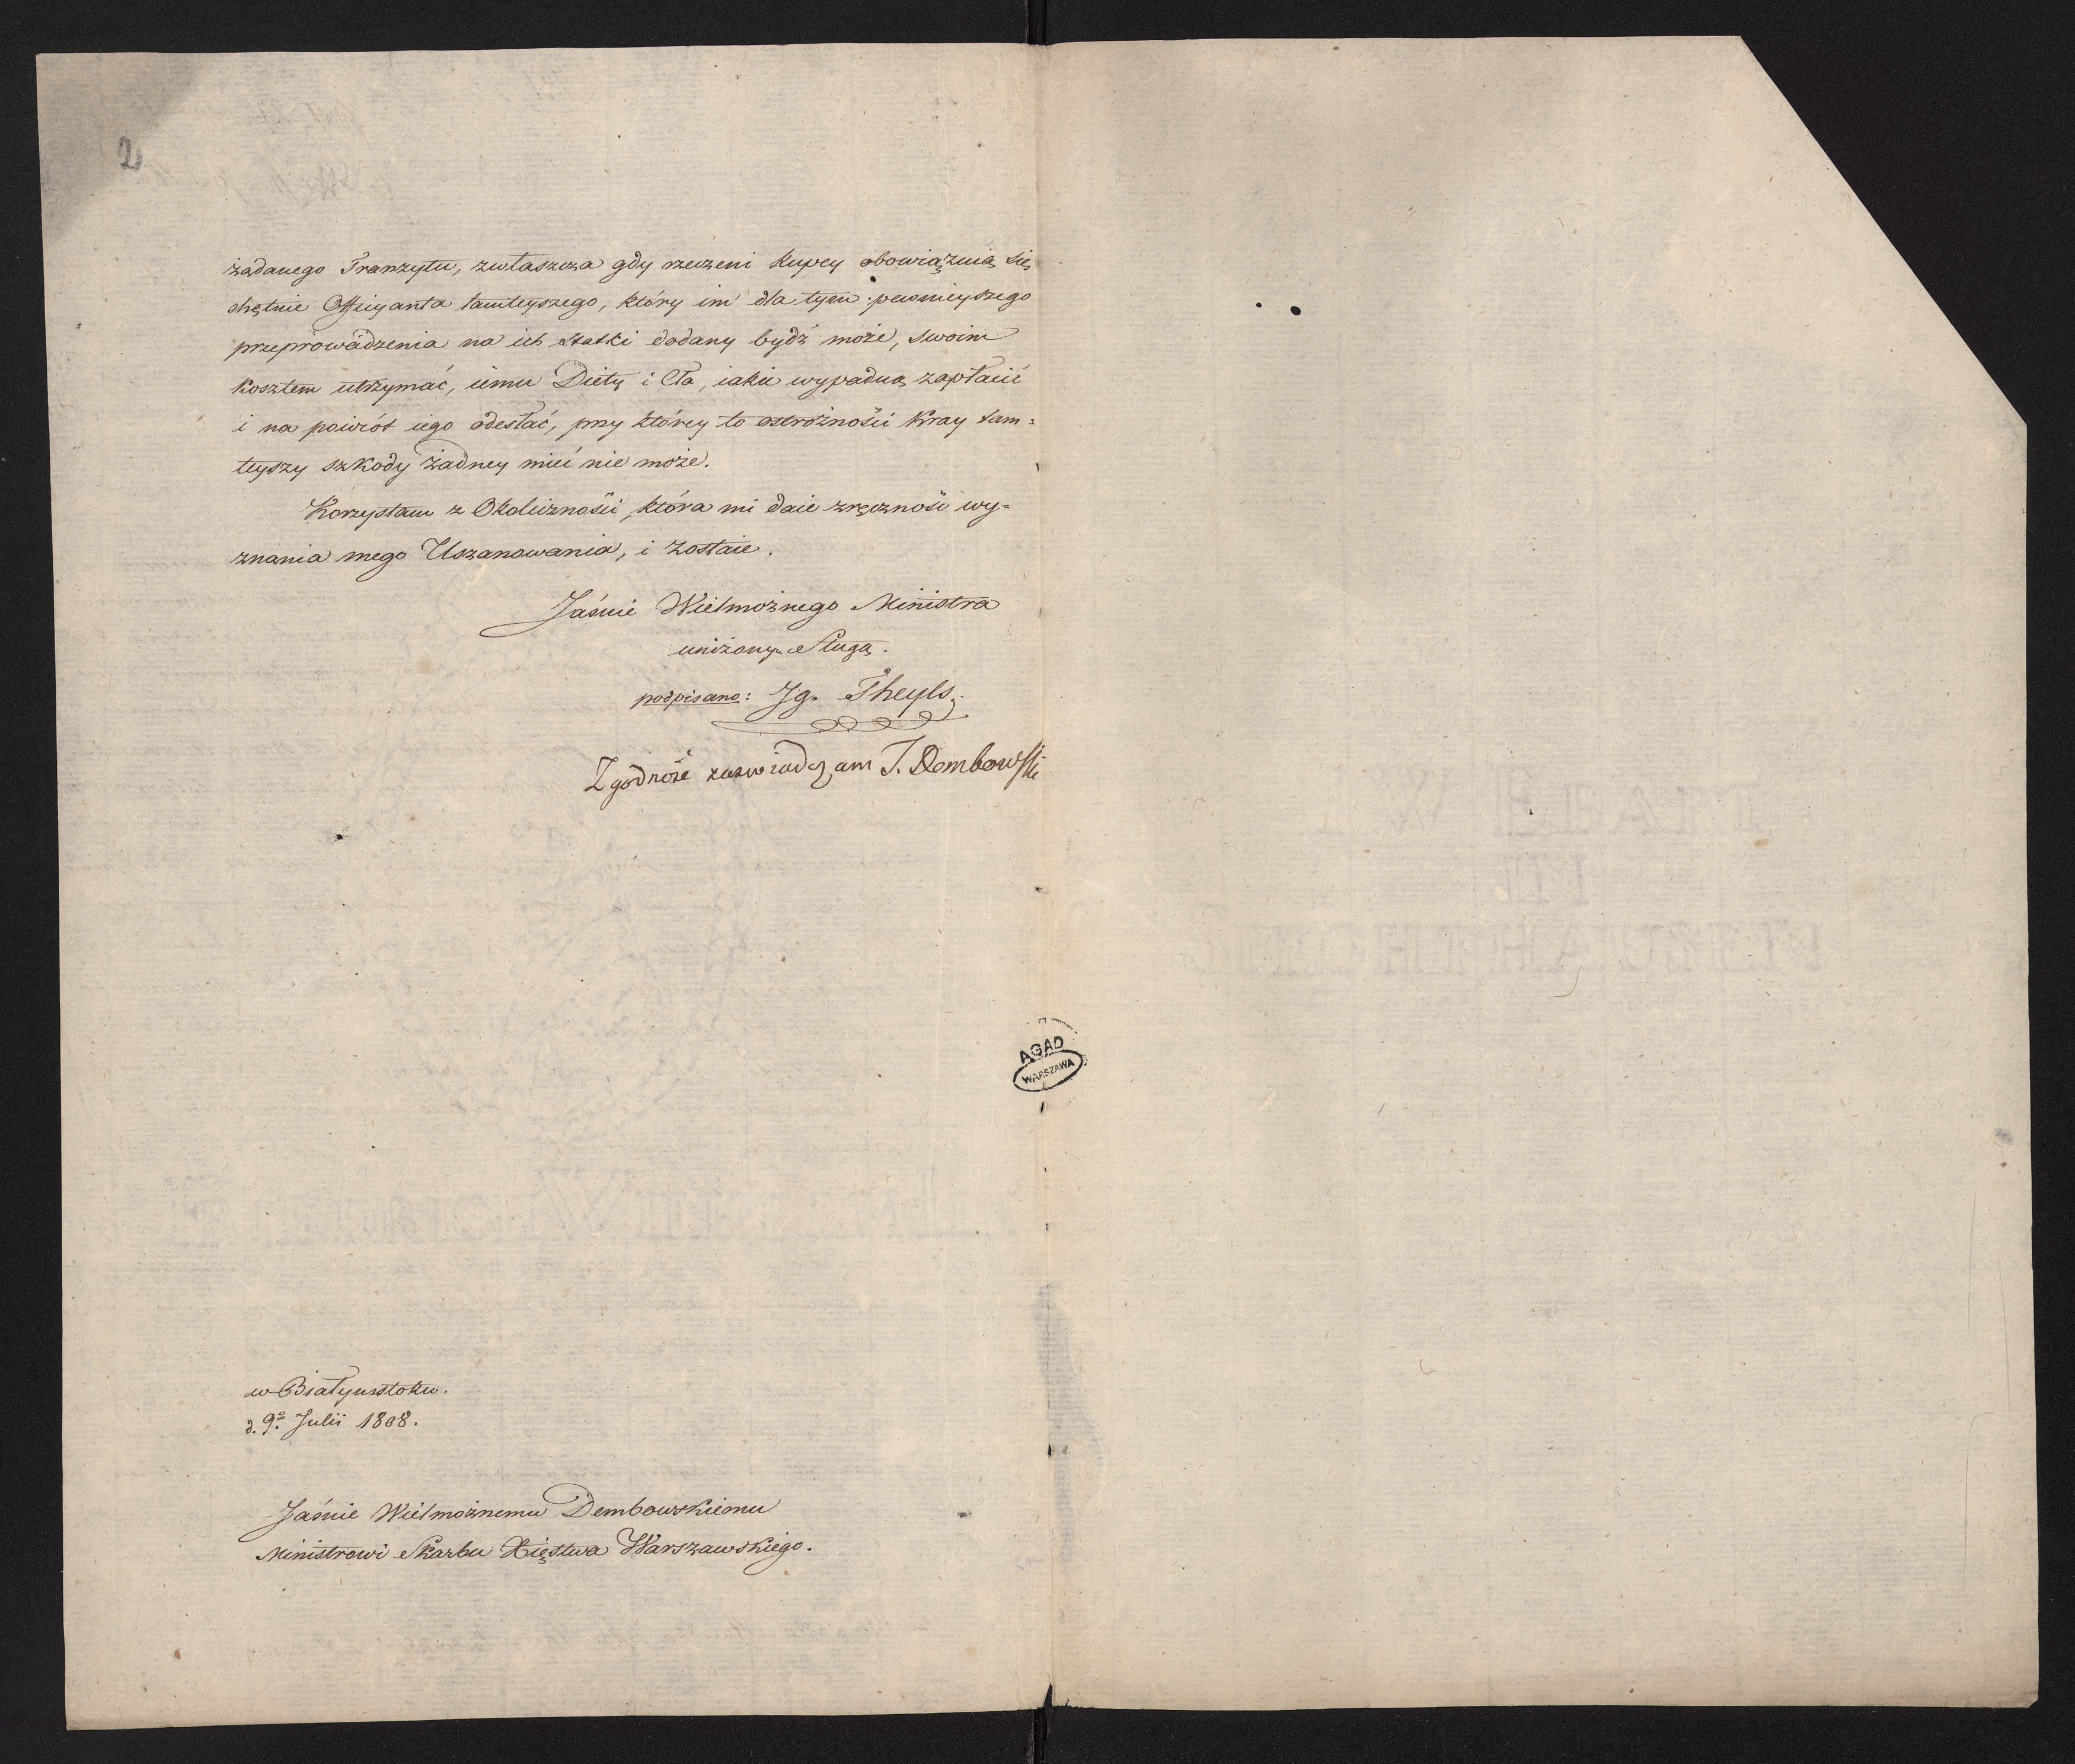 2
żądanego Tranzytu, zwłaszcza gdy rzeczeni Kupcy obowiązuią się
chętnie Officyanta tamteyszego, który im dla tym pewnieyszego
przeprowadzenia na ich statki dodany bydź może, swoim
kosztem utrzymać, iemu Diety i Cła, iakie wypadną zapłacić
i na powrót iego odesłać, przy którey to ostrożności Kray tam=
teyszy szkody żadney mieć nie może.
Korzystam z Okoliczności, która mi daie zręczność wy=
znania mego Uszanowania, i zostaie.
Jaśnie Wielmożnego Ministra
uniżonym Sługą.
podpisano: Ig. Theyls
Zgodność zaświadczam J. Dembowski
AGAD
WARSZAWA
w Białymstoku.
d. 9º Julii 1808.
Jaśnie Wielmożnemu Dembowskiemu
Ministrowi Skarbu Xięstwa Warszawskiego.